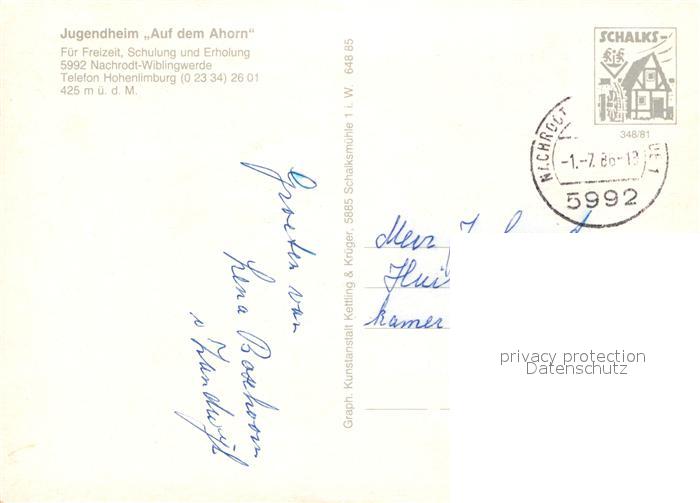 Jugendheim „Auf dem Ahorn“
Für Freizeit, Schulung und Erholung
5992 Nachrodt-Wiblingwerde
Telefon Hohenlimburg (0 23 34) 26 01
425 m ü. d. M.
SCHALKS-
348/81
NACHRODT
1
-1.-7.86-18
5992
Graph. Kunstanstalt Kettling & Krüger, 5885 Schalksmühle 1 i. W. 648 85
Groeten van
Lena Boxhoorn
Mevr
Hui
kamer
privacy protection
Datenschutz